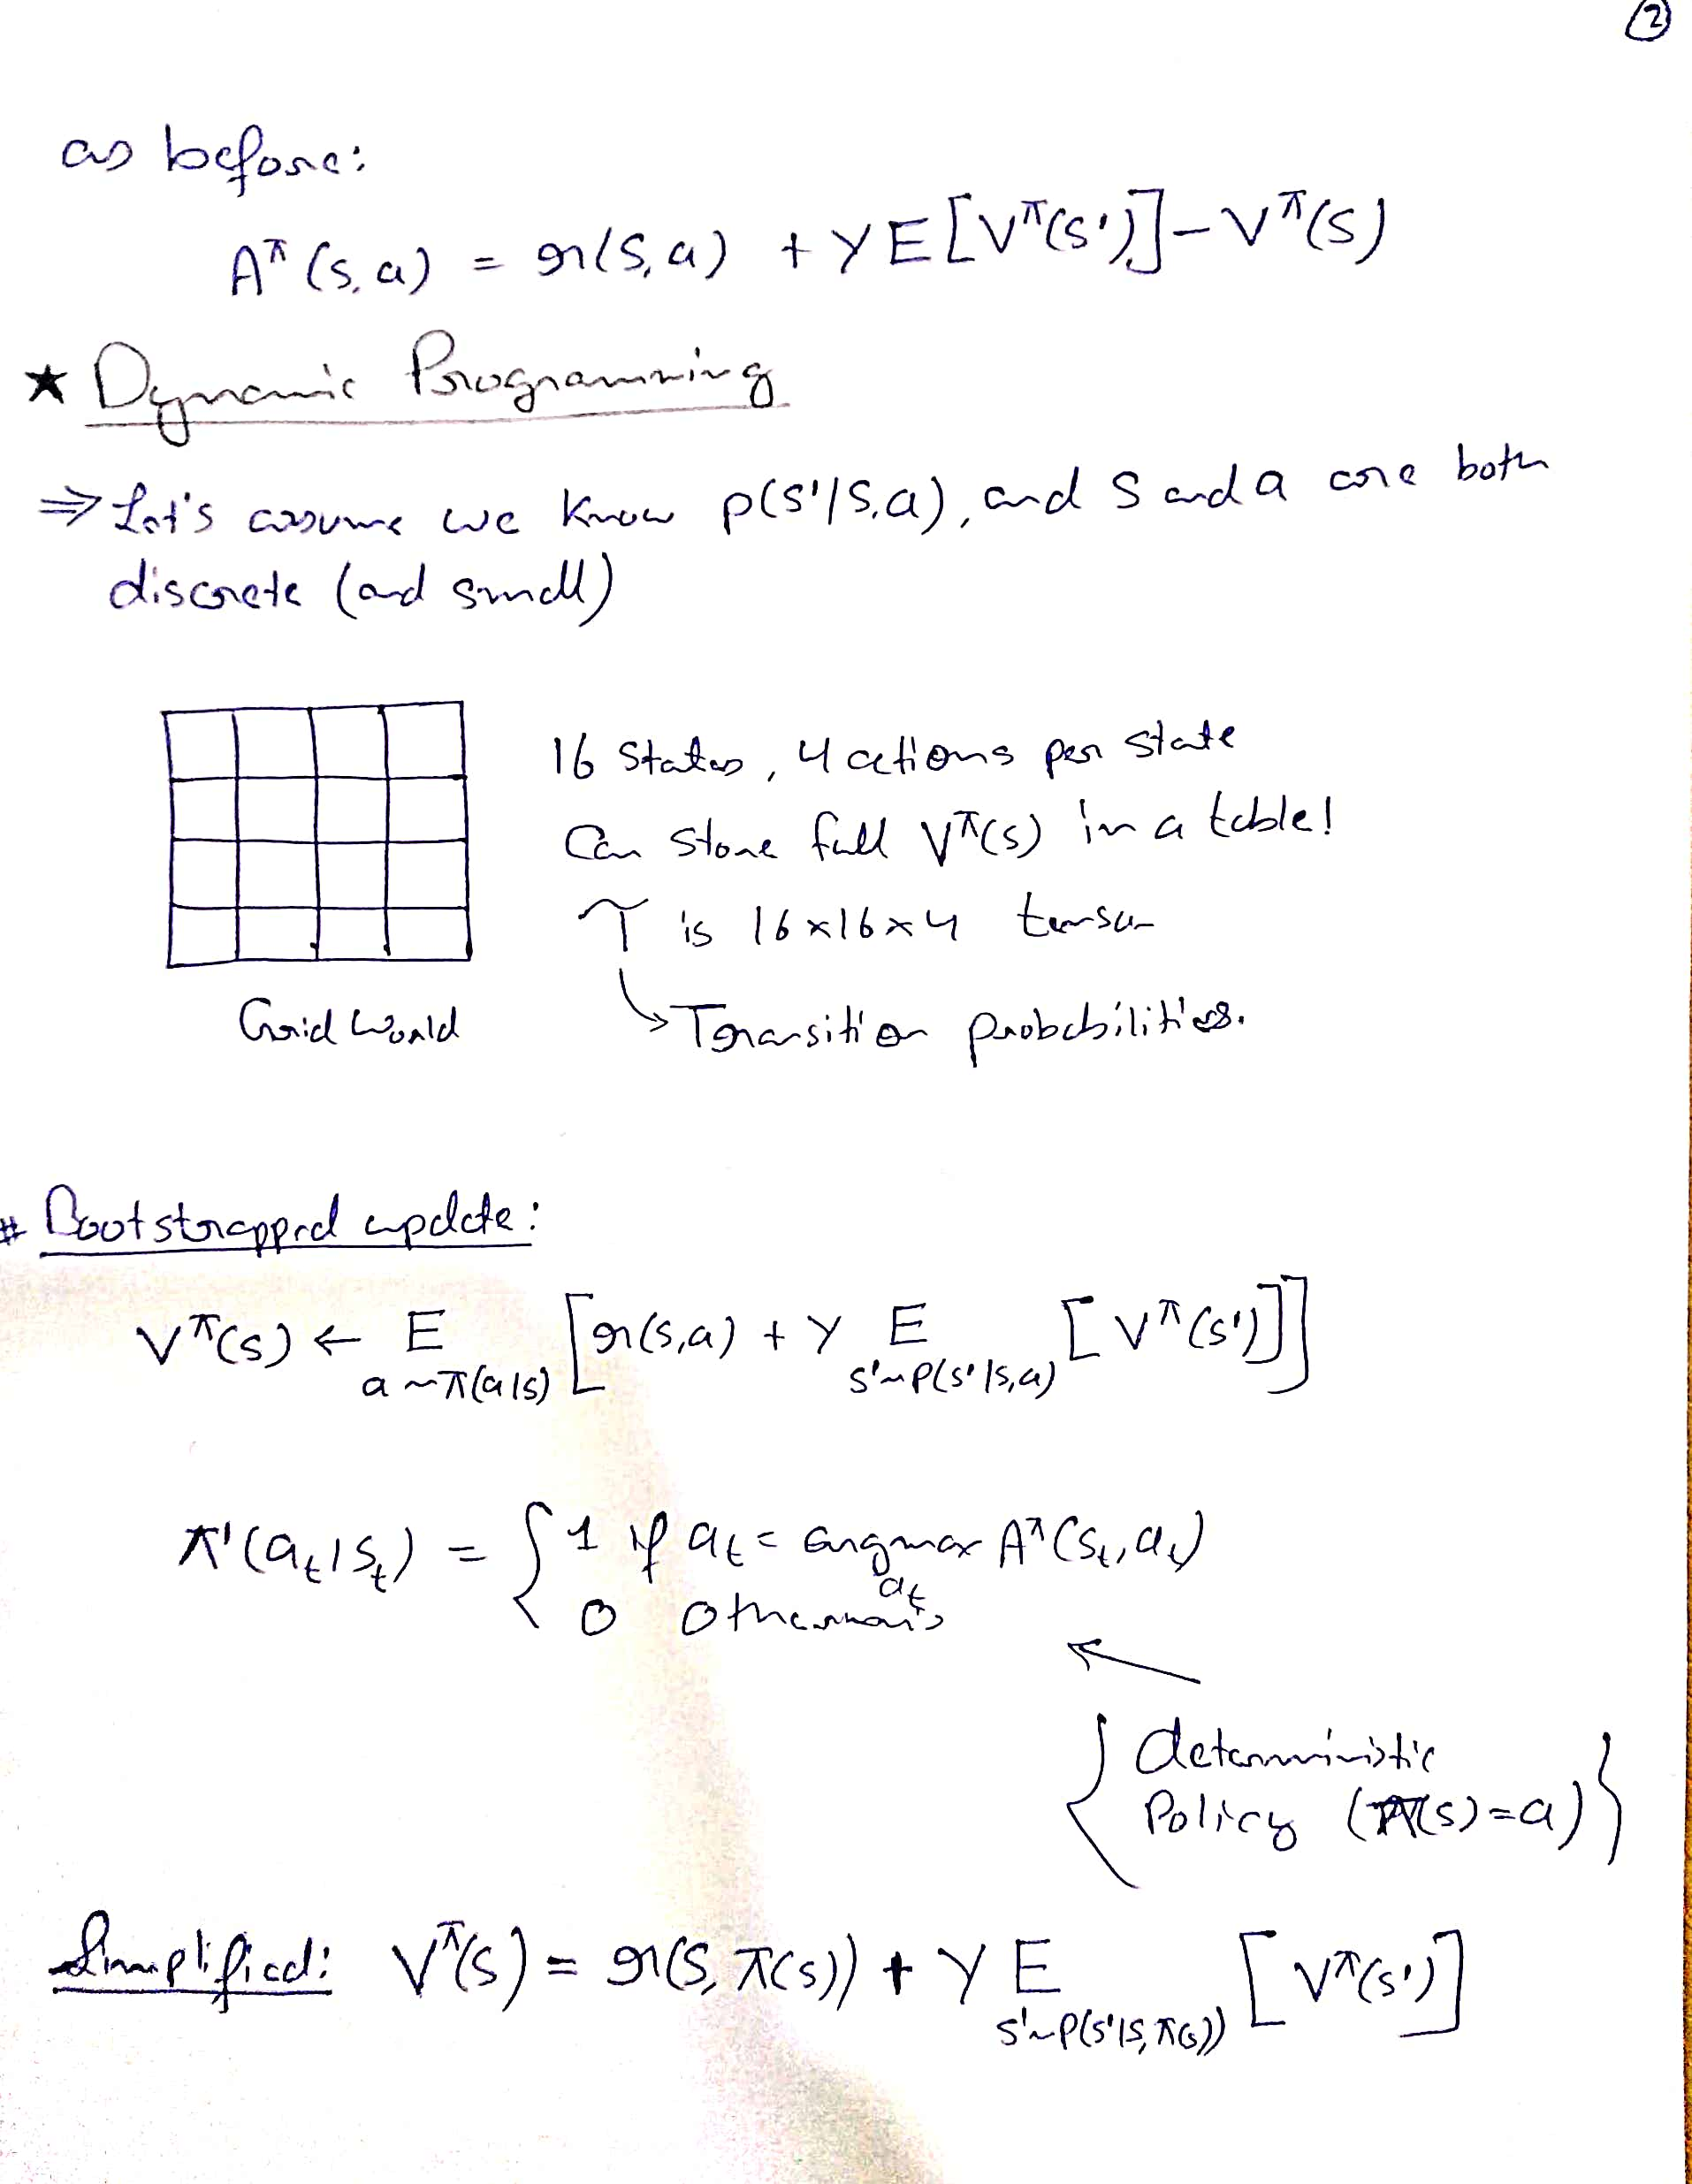 ②
as before:
A^π(s,a) = r(s,a) + γE[V^π(s')] − V^π(s)
★ Dynamic Programming
⇒ Let's assume we know p(s'|s,a), and s and a are both
discrete (and small)
16 states, 4 actions per state
Can store full V^π(s) in a table!
T is 16×16×4 tensor
Grid World
↳ Transition probabilities.
# Bootstrapped update:
V^π(s) ← E_{a∼π(a|s)} [r(s,a) + γ E_{s'∼p(s'|s,a)} [V^π(s')]]
π'(a_t|s_t) = { 1 if a_t = argmax_{a_t} A^π(s_t,a_t)
0 otherwise
{ deterministic
Policy (π(s)=a) }
Simplified: V^π(s) = r(s,π(s)) + γ E_{s'∼p(s'|s,π(s))} [V^π(s')]